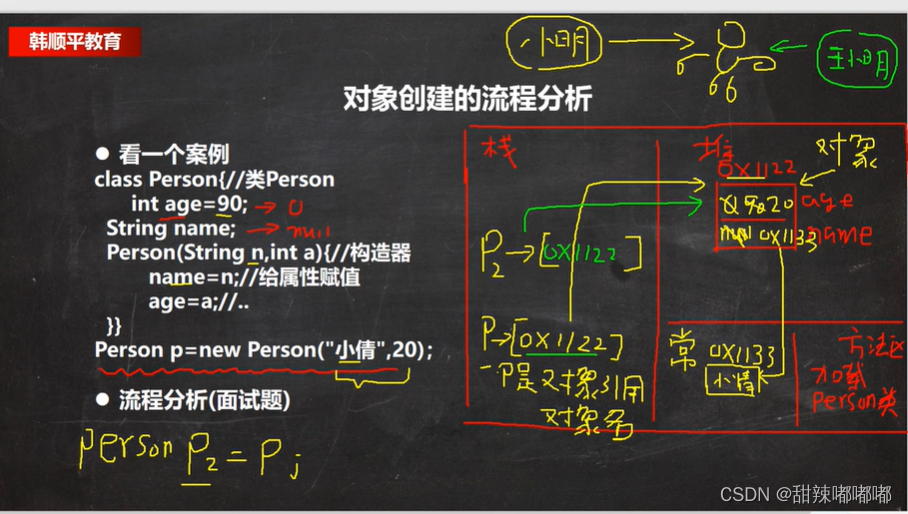 韩顺平教育
小明
王小明
对象创建的流程分析
● 看一个案例
class Person{//类Person
int age=90; → 0
String name; → null
Person(String n,int a){//构造器
name=n;//给属性赋值
age=a;//..
}}
Person p=new Person("小倩",20);
● 流程分析(面试题)
Person P2 = P;
栈
P2→[0X1122]
P→[0X1122]
P是对象引用
对象名
堆
对象
0X1122
20 age
null 0X1133 name
常
0X1133
小倩
方法区
加载
Person类
CSDN @甜辣嘟嘟嘟